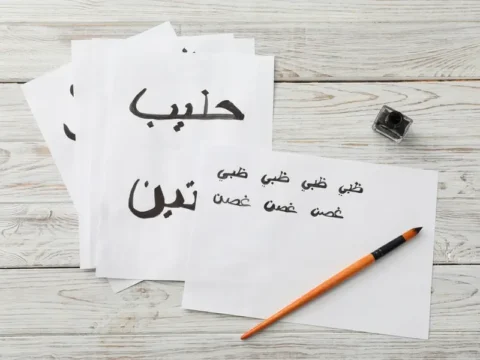 حليب
تين
ظبي ظبي ظبي ظبي
غصن غصن غصن غصن